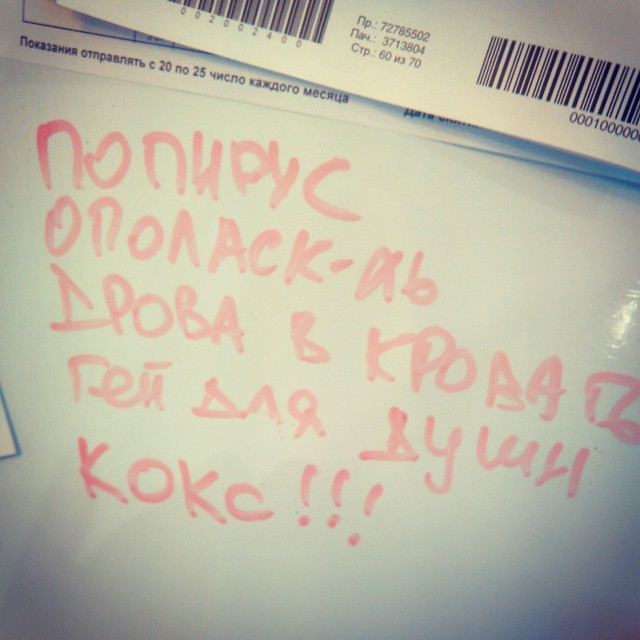 002002400
Пр.: 72785502
Пач.: 3713804
Стр.: 60 из 70
Показания отправлять с 20 по 25 число каждого месяца
ПОПИРУС
ОПОЛАСК-ль
ДРОВА В КРОВАТЬ
Гей ДЛЯ ДУШИ
КОКС!!!